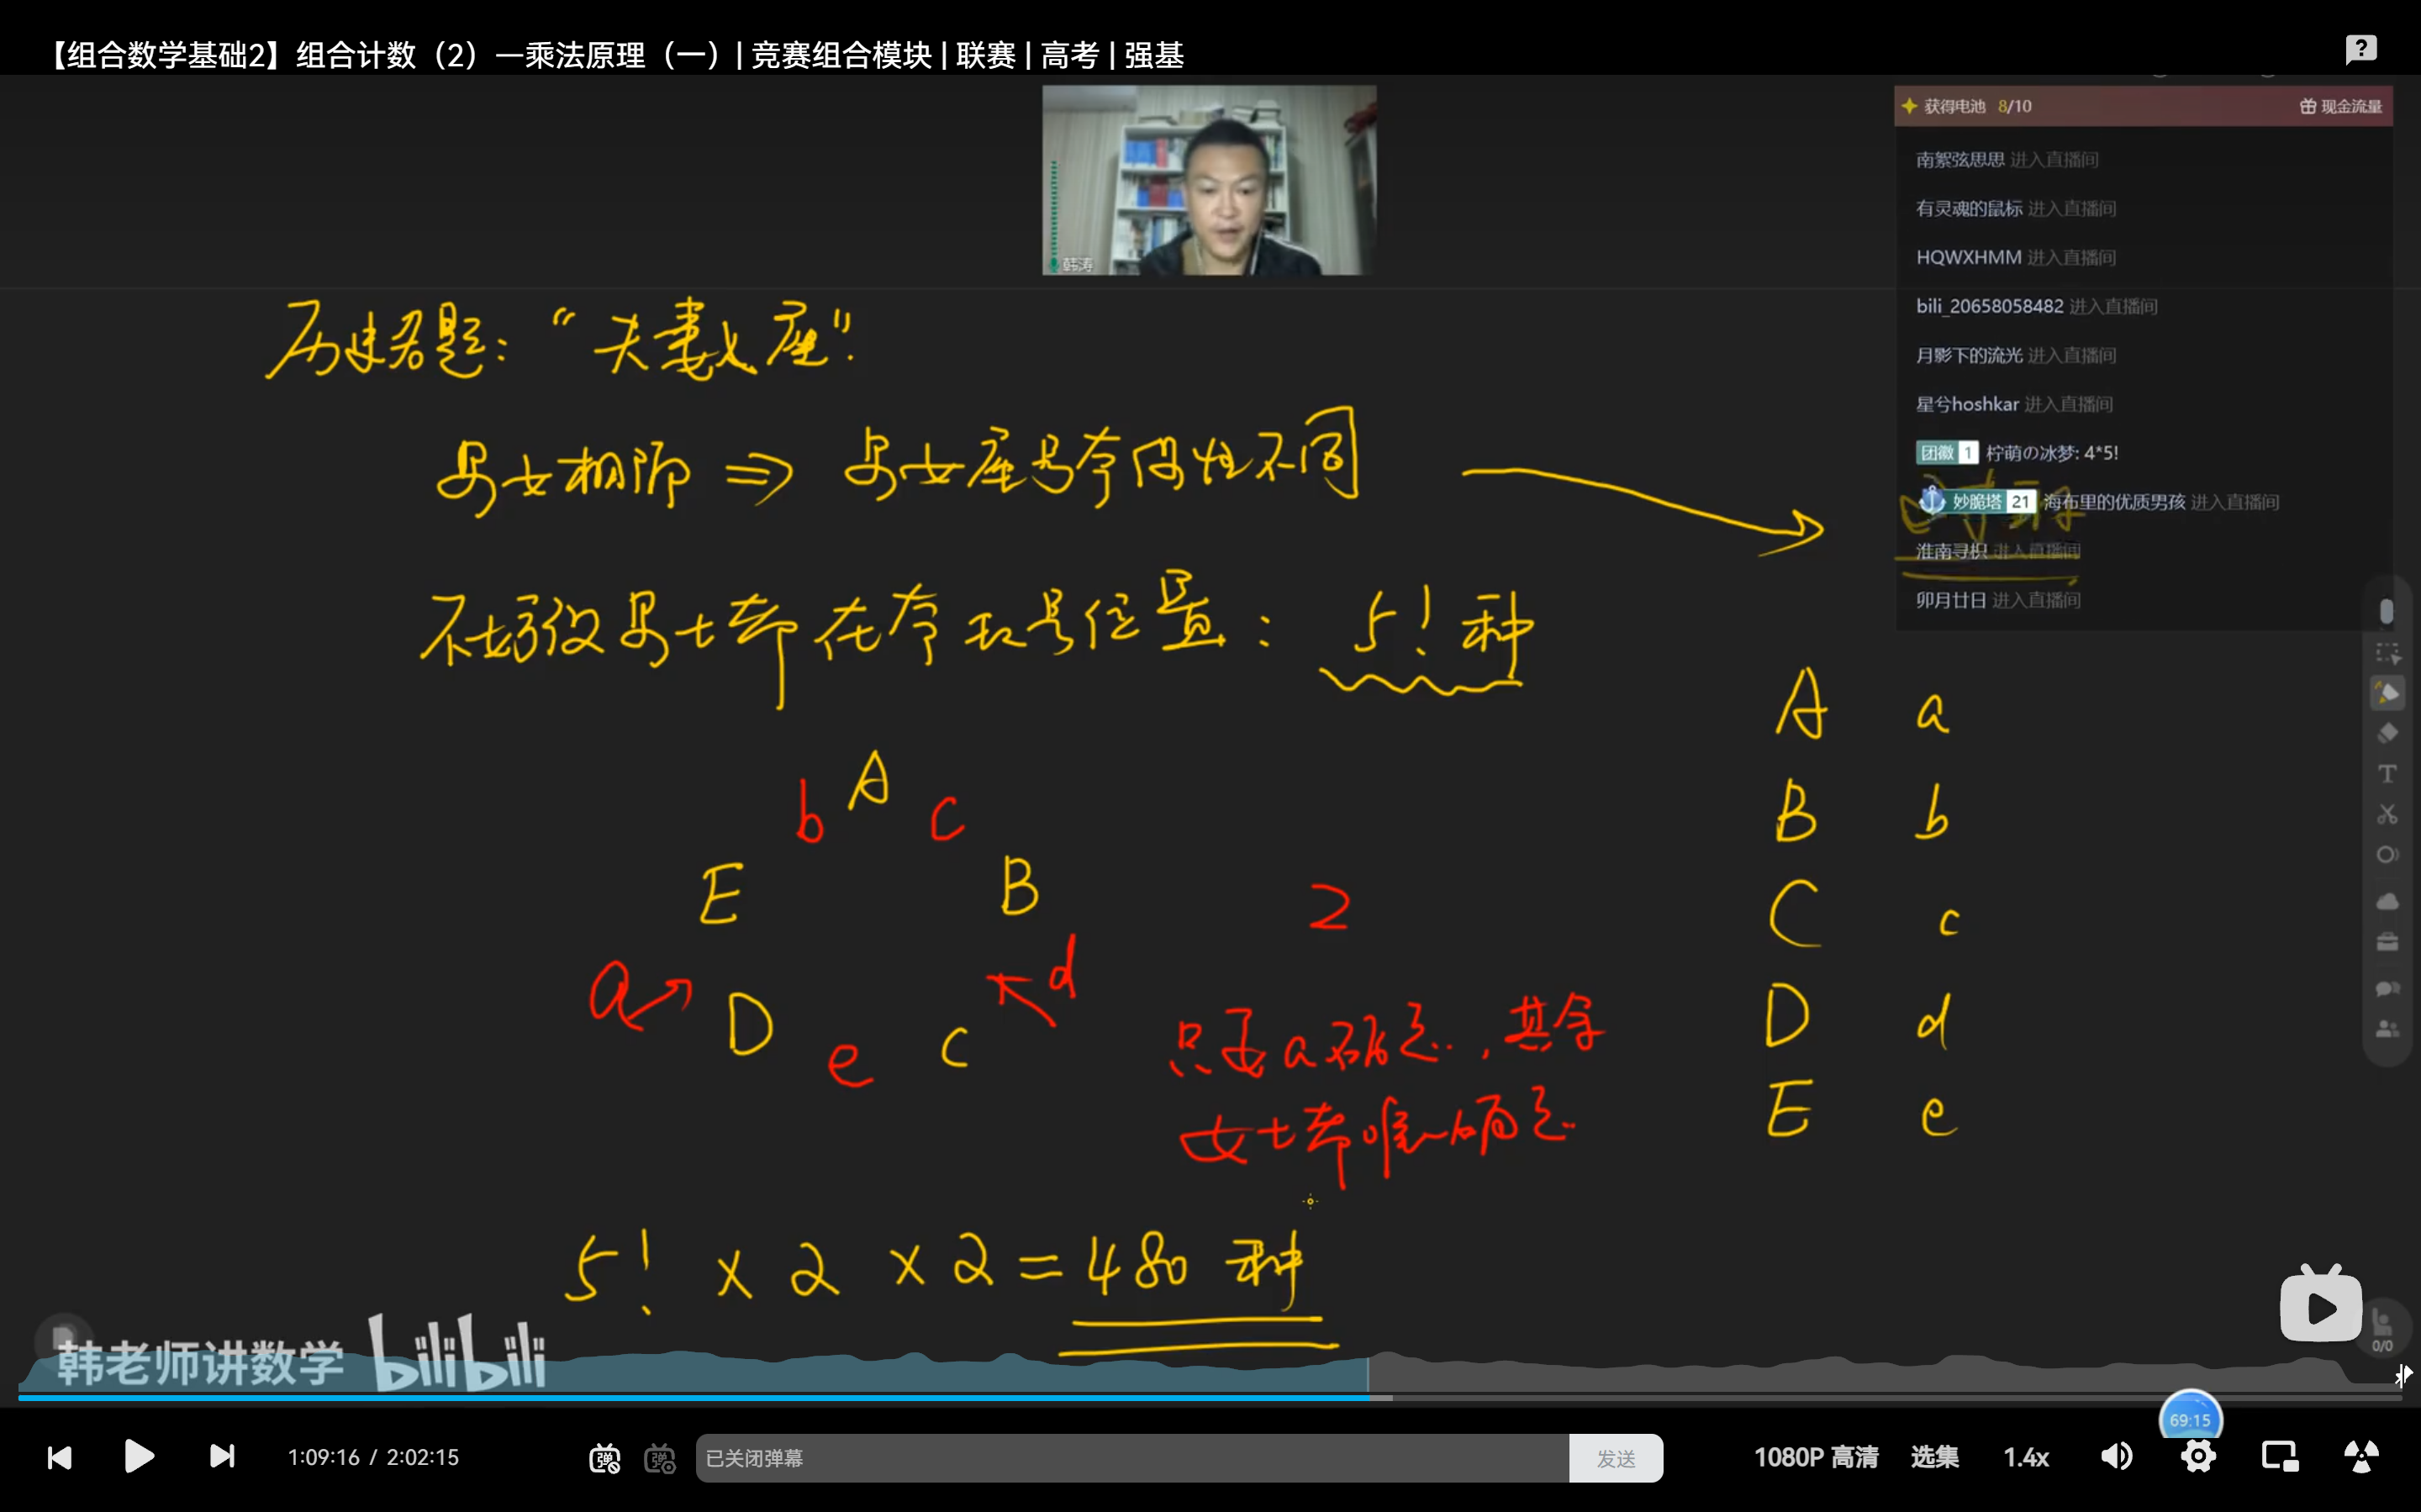 【组合数学基础2】组合计数（2）—乘法原理（一）| 竞赛组合模块 | 联赛 | 高考 | 强基
获得电池 8/10 现金流量
韩涛
南絮弦思思 进入直播间
有灵魂的鼠标 进入直播间
HQWXHMM 进入直播间
bili_20658058482 进入直播间
月影下的流光 进入直播间
星兮hoshkar 进入直播间
团徽 1 柠萌の冰梦: 4*5!
妙脆塔 21 海布里的优质男孩 进入直播间
淮南寻枳 进入直播间
卯月廿日 进入直播间
历史名题：“夫妻入座”.
男女相邻 ⇒ 男女座号奇偶性不同
不妨设男士都在奇数号位置： 5! 种
A a
B b
C c
D d
E e
b A c
E B
a D e C d
2
只要a确定，其余
女士都唯一确定
5! × 2 × 2 = 480 种
韩老师讲数学 bilibili
0/0
69:15
1:09:16 / 2:02:15
弹 弹
已关闭弹幕 发送
1080P 高清 选集 1.4x